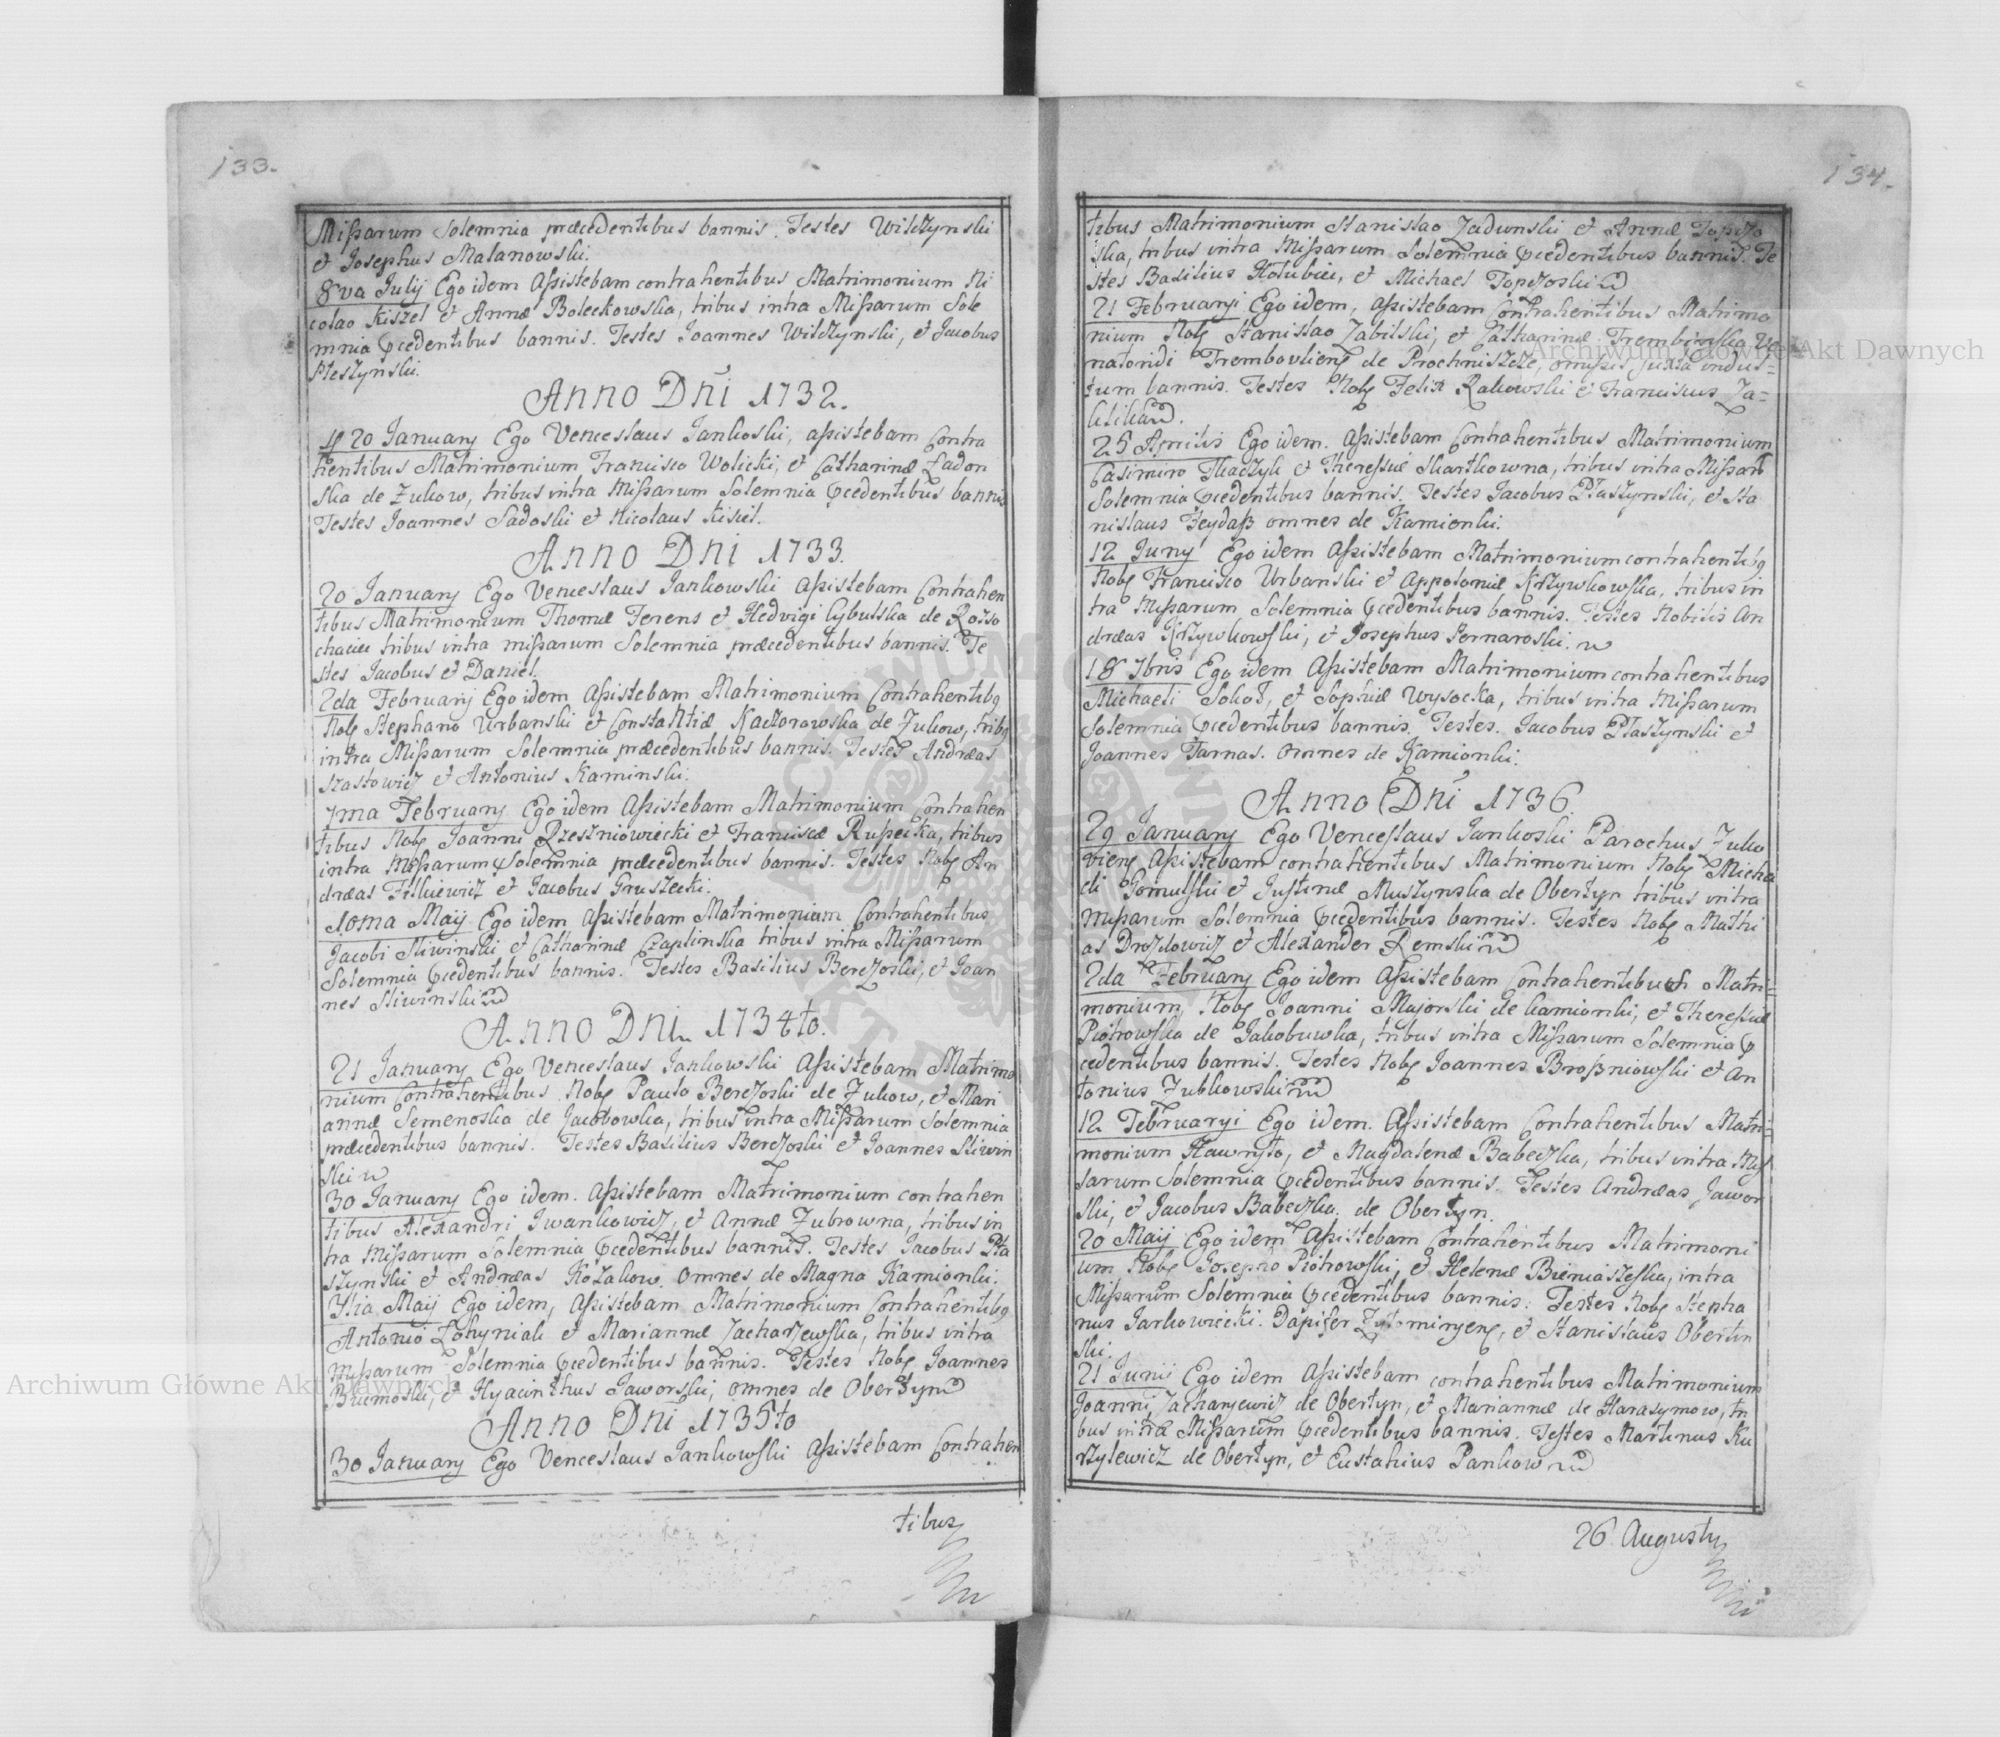 133.
Missarum Solemnia præcedentibus bannis. Testes Wilczynski
et Josephus Malanowski.
8va Julij Ego idem Assistebam contrahentibus Matrimonium Ni
colao Kiszel et Annæ Boleckowska, tribus intra Missarum Sole
mnia præcedentibus bannis. Testes Joannes Wilczynski, et Jacobus
Pleszynski.
Anno Dñi 1732.
20 January Ego Venceslaus Jankoski, assistebam Contra
hentibus Matrimonium Francisco Wolicki, et Catharinæ Ladon
ska de Zukow, tribus intra Missarum Solemnia præcedentibus bannis
Testes Joannes Sadoski et Nicolaus Kisiel.
Anno Dñi 1733.
20 January Ego Venceslaus Jankowski Assistebam Contrahen
tibus Matrimonium Thomæ Ferens et Hedvigi Cybulska de Rosso
chaciec tribus intra missarum Solemnia præcedentibus bannis. Te
stes Jacobus et Daniel.
2da February Ego idem Assistebam Matrimonium Contrahentibq
Nob Stephano Urbanski et Constantiæ Kaczorawska de Zukow, tribq
intra Missarum Solemnia præcedentibus bannis. Testes Andræas
Szastowicz et Antonius Kaminski.
7ma February Ego idem Assistebam Matrimonium Contrahen
tibus Nob Joanni Rzeszniowiecki et Franciscæ Rusecka, tribus
intra Missarum Solemnia præcedentibus bannis. Testes Nob An
dræas Filkiewicz et Jacobus Gruszecki.
10ma Maij Ego idem Assistebam Matrimonium Contrahentibus
Jacobi Sliwinski et Catharinæ Czaplinska tribus intra Missarum
Solemnia præcedentibus bannis. Testes Basilius Berezoski, et Joan
nes Sliwinski
Anno Dni 1734to.
21 January Ego Venceslaus Jankowski Assistebam Matrimo
nium Contrahentibus Nob Paulo Berezoski de Zukow, et Mari
annæ Semenoska de Jacobowka, tribus intra Missarum Solemnia
præcedentibus bannis. Testes Basilius Berezoski et Joannes Sliwin
ski
30 January Ego idem. Assistebam Matrimonium contrahen
tibus Alexandri Iwankowicz, et Annæ Zubrowna, tribus in
tra Missarum Solemnia præcedentibus bannis. Testes Jacobus Pta
szynski et Andræas Kozakow. Omnes de Magna Kamionki.
3tia Maij Ego idem, Assistebam Matrimonium Contrahentibq
Antonio Lohyniak et Mariannæ Zacharzewska, tribus intra
Missarum Solemnia præcedentibus bannis. Testes Nob Joannes
et Hyacinthus Jaworski, omnes de Obertyn
Anno Dni 1735to
30 January Ego Venceslaus Jankowski Assistebam Contrahen
tibus
134.
tibus Matrimonium Stanislao Zadunski et Annæ Topczo
ska, tribus intra Missarum Solemnia præcedentibus bannis. Te
stes Basilius Holubiec, et Michael Topczoski
21 Februaryj Ego idem, Assistebam Contrahentibus Matrimo
nium Nob Stanislao Zabilski, et Catharinæ Trembinska Ve
natoridi Trembovliens de Prochniszcze, omissis juxta indul=
tum bannis. Testes Nob Felix Rakowski et Franciscus Ja=
klika.
25 Aprilis Ego idem. Assistebam Contrahentibus Matrimonium
Casimiro Tkaczyk et Theressiæ Skartkowna, tribus intra Missar
Solemnia præcedentibus bannis. Testes Jacobus Ptaszynski, et Sta
nislaus Feydasz omnes de Kamionki.
12 Juny Ego idem Assistebam Matrimonium contrahentibq
Nob Francisco Urbanski et Appoloniæ Krzywkowska, tribus in
tra Missarum Solemnia præcedentibus bannis. Testes Nobilis An
dræas Krzywkowski, et Josephus Pernaroski.
18 7bris Ego idem Assistebam Matrimonium contrahentibus
Michaeli Sokoł, et Sophiæ Wysocka, tribus intra Missarum
Solemnia præcedentibus bannis. Testes. Jacobus Ptaszynski et
Joannes Tarnas. omnes de Kamionki.
Anno Dñi 1736.
29 January Ego Venceslaus Jankoski Parochus Zuko
viens Assistebam contrahentibus Matrimonium Nob Micha
eli Gomulski et Justinæ Muszynska de Obertyn tribus intra
Missarum Solemnia præcedentibus bannis. Testes Nob Mathi
as Drozdowicz et Alexander Remski
2da February Ego idem Assistebam Contrahentibus Matri=
monium Nob Joanni Majorski de Kamionki, et Theressiæ
Piotrowska de Jakobuwka, tribus intra Missarum Solemnia præ
cedentibus bannis. Testes Nob Joannes Brosniowski et An
tonius Zubkowski
12 Februaryi Ego idem. Assistebam Contrahentibus Matri=
monium Hawryło, et Magdalenæ Babeczka, tribus intra Mis
sarum Solemnia præcedentibus bannis. Testes Andræas Jawor
ski, et Jacobus Babeczka. de Obertyn.
20 Maij Ego idem Assistebam Contrahentibus Matrimoni
um Nob Josepho Piotrowski, et Helenæ Bieniaszeska, intra
Missarum Solemnia præcedentibus bannis: Testes Nob Stepha
nus Jarkowiecki. Dapifer Zytomiryens, et Stanislaus Obertin
ski.
21 Junii Ego idem Assistebam contrahentibus Matrimonium
Joanni Zacharyewicz de Obertyn, et Mariannæ de Harasymow, tri
bus intra Missarum præcedentibus bannis. Testes Martinus Ku
rzylewicz de Obertyn, et Eustahius Pankow
26 Augusty
Archiwum Główne Akt Dawnych
Archiwum Główne Akt Dawnych